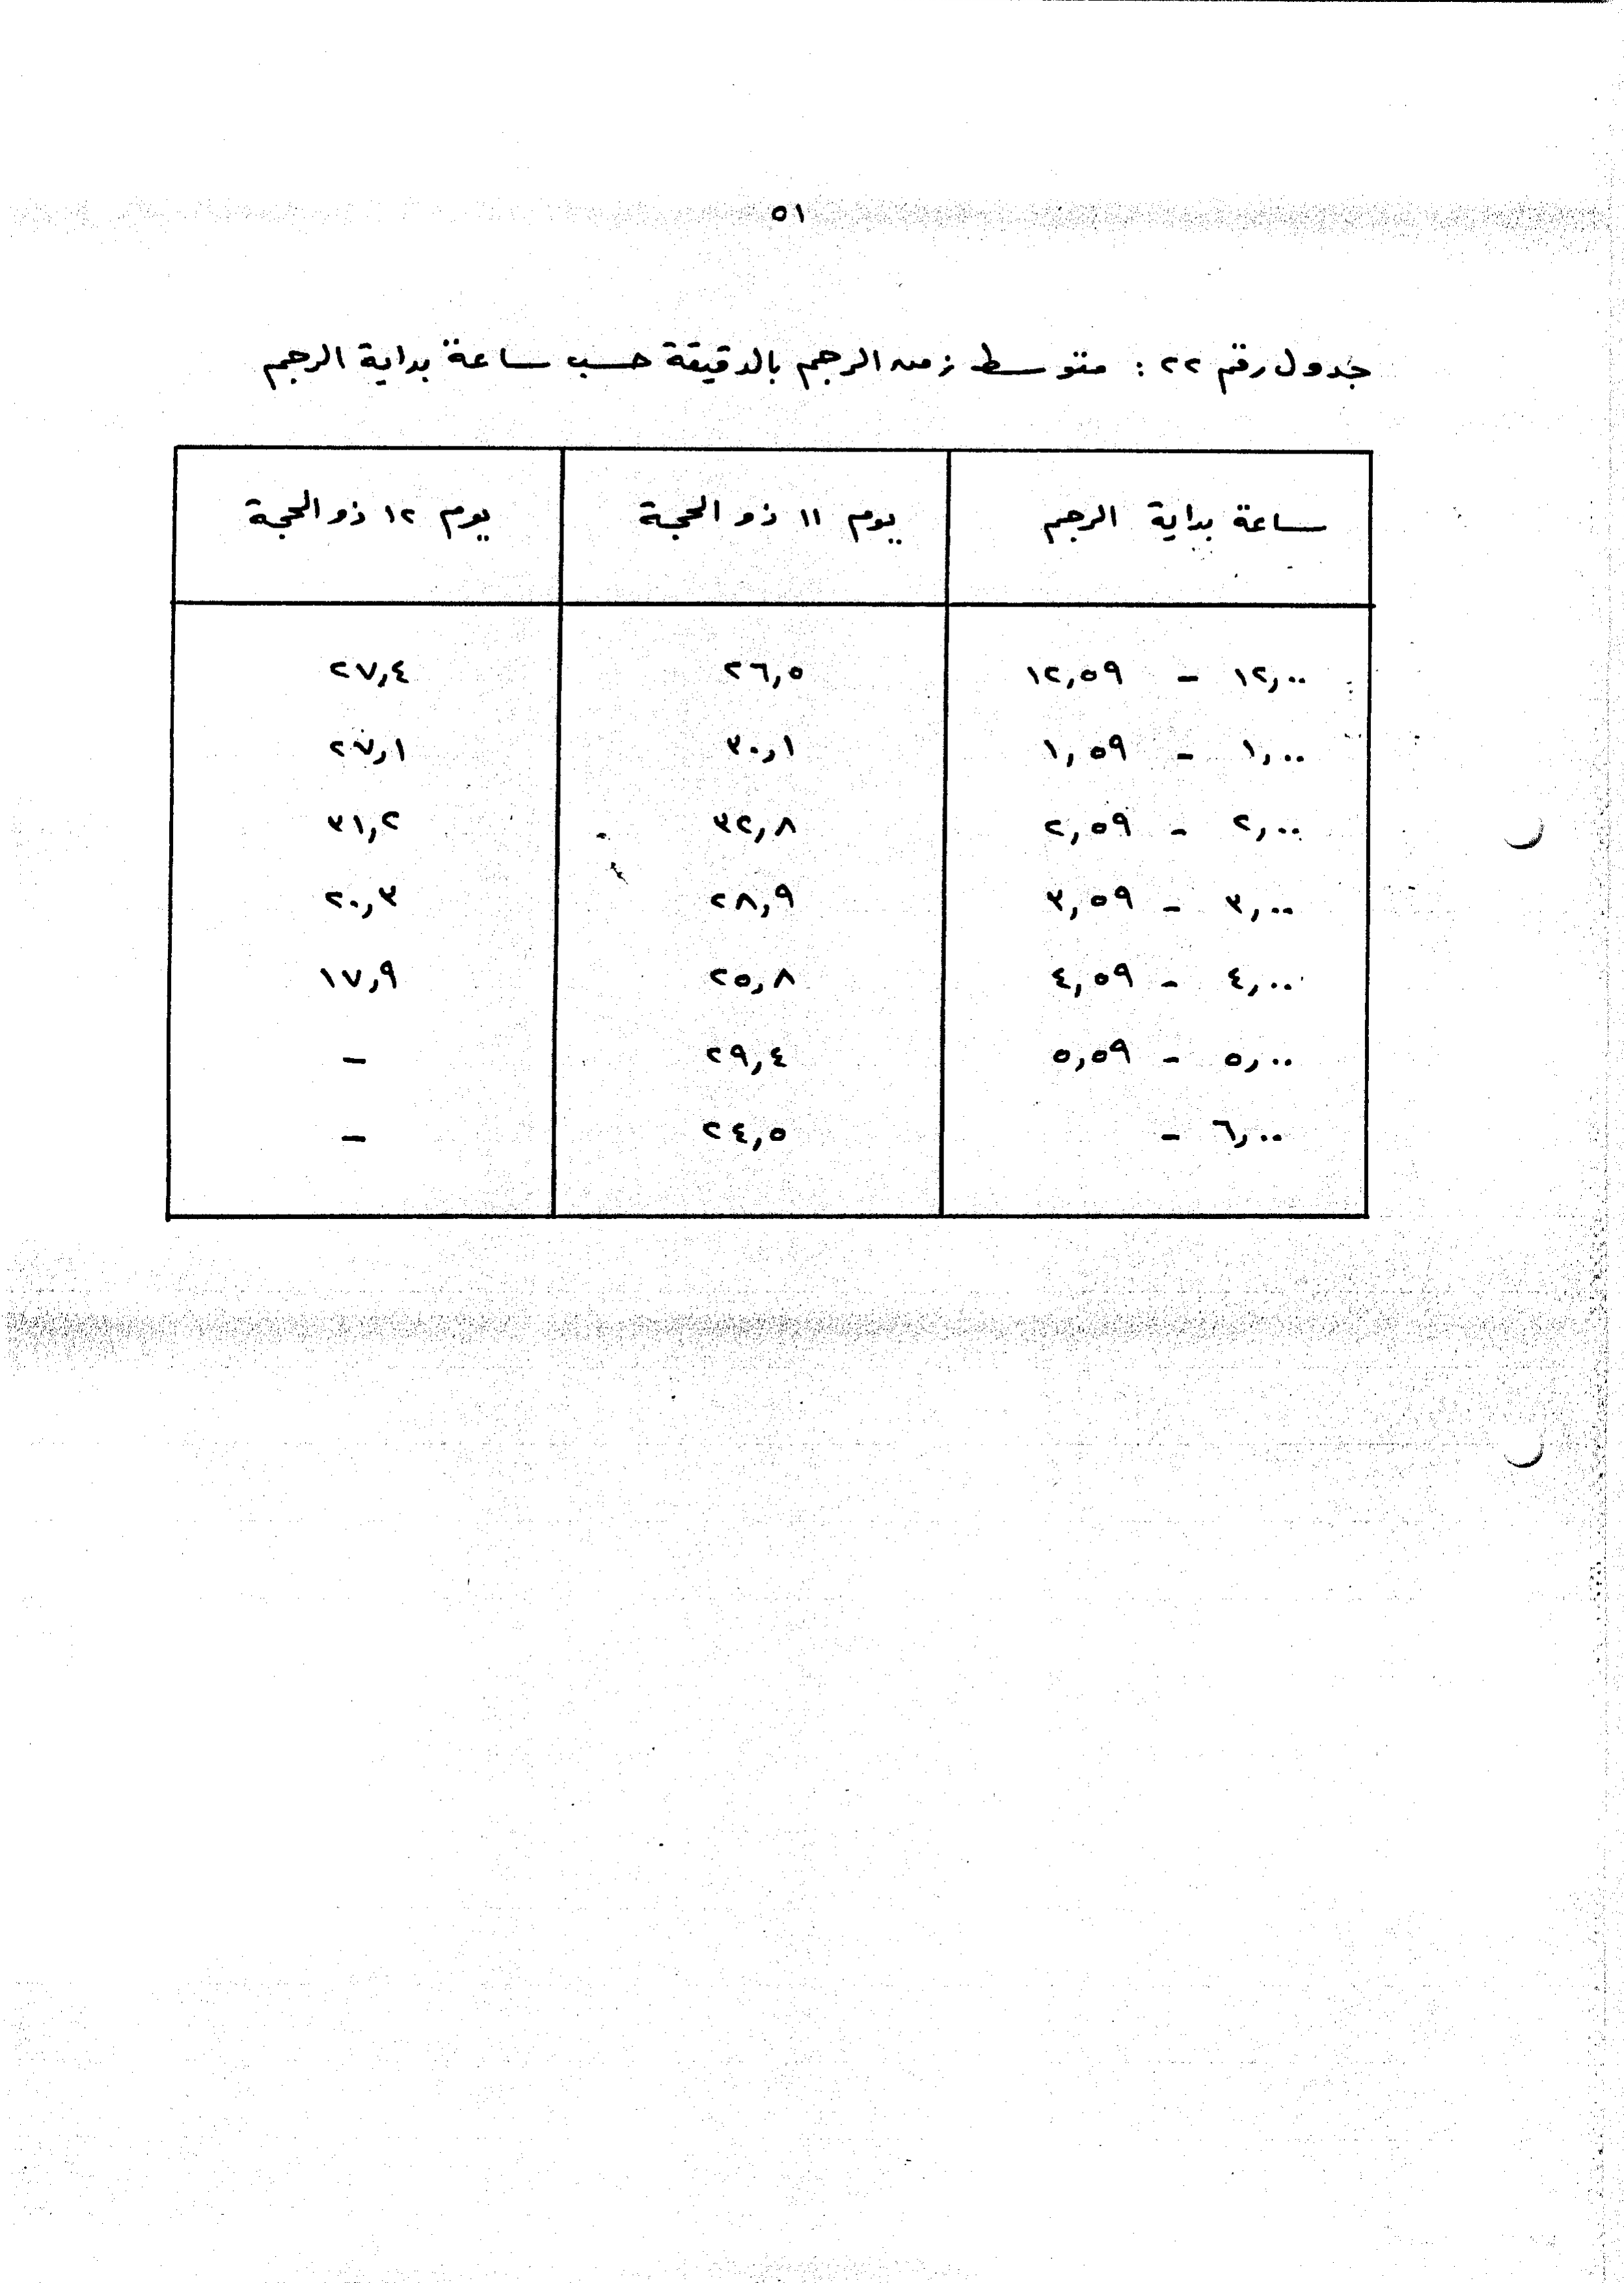 ٥١
جدول رقم ٢٢ : متوسط زمن الرجم بالدقيقة حسب ساعة بداية الرجم
ساعة بداية الرجم يوم ١١ ذو الحجة يوم ١٢ ذو الحجة
١٢,٠٠ - ١٢,٥٩ ٢٦,٥ ٢٧,٤
١,٠٠ - ١,٥٩ ٣٠,١ ٢٧,١
٢,٠٠ - ٢,٥٩ ٣٢,٨ ٣١,٢
٣,٠٠ - ٣,٥٩ ٢٨,٩ ٢٠,٣
٤,٠٠ - ٤,٥٩ ٢٥,٨ ١٧,٩
٥,٠٠ - ٥,٥٩ ٢٩,٤ -
٦,٠٠ - ٢٤,٥ -